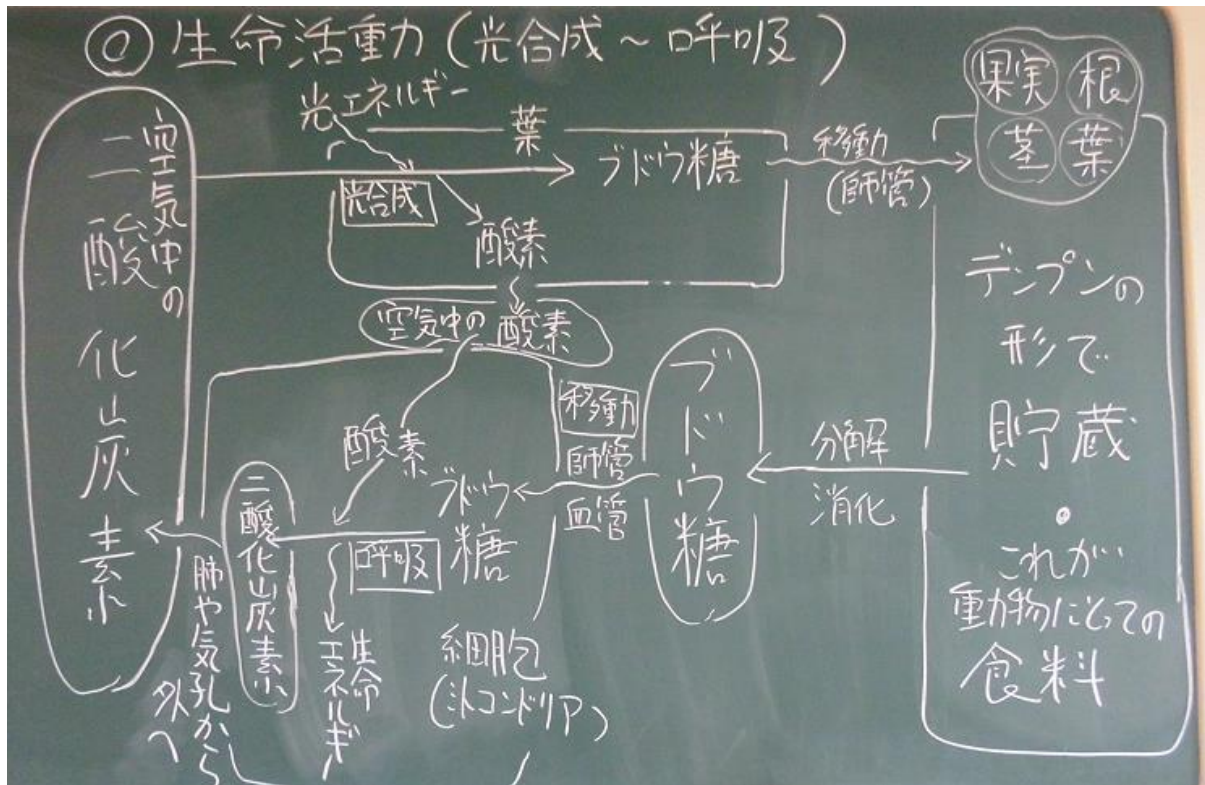 ◎ 生命活動力(光合成~呼吸)
空気中の
二酸化炭素
光エネルギー
葉
光合成
ブドウ糖
酸素
移動
(師管)
果実 根
茎 葉
デンプンの
形で
貯蔵
・
これが
動物にとっての
食料
空気中の酸素
酸素
分解
消化
ブドウ糖
移動
師管
血管
ブドウ
糖
呼吸
二酸化炭素
生命
エネルギ
細胞
(ミトコンドリア)
肺や気孔から
外へ